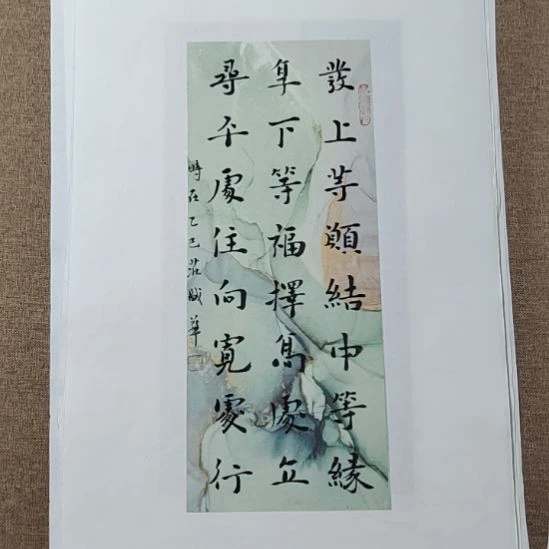 發上等願結中等緣
享下等福擇高處立
尋平處住向寬處行
時在乙巳